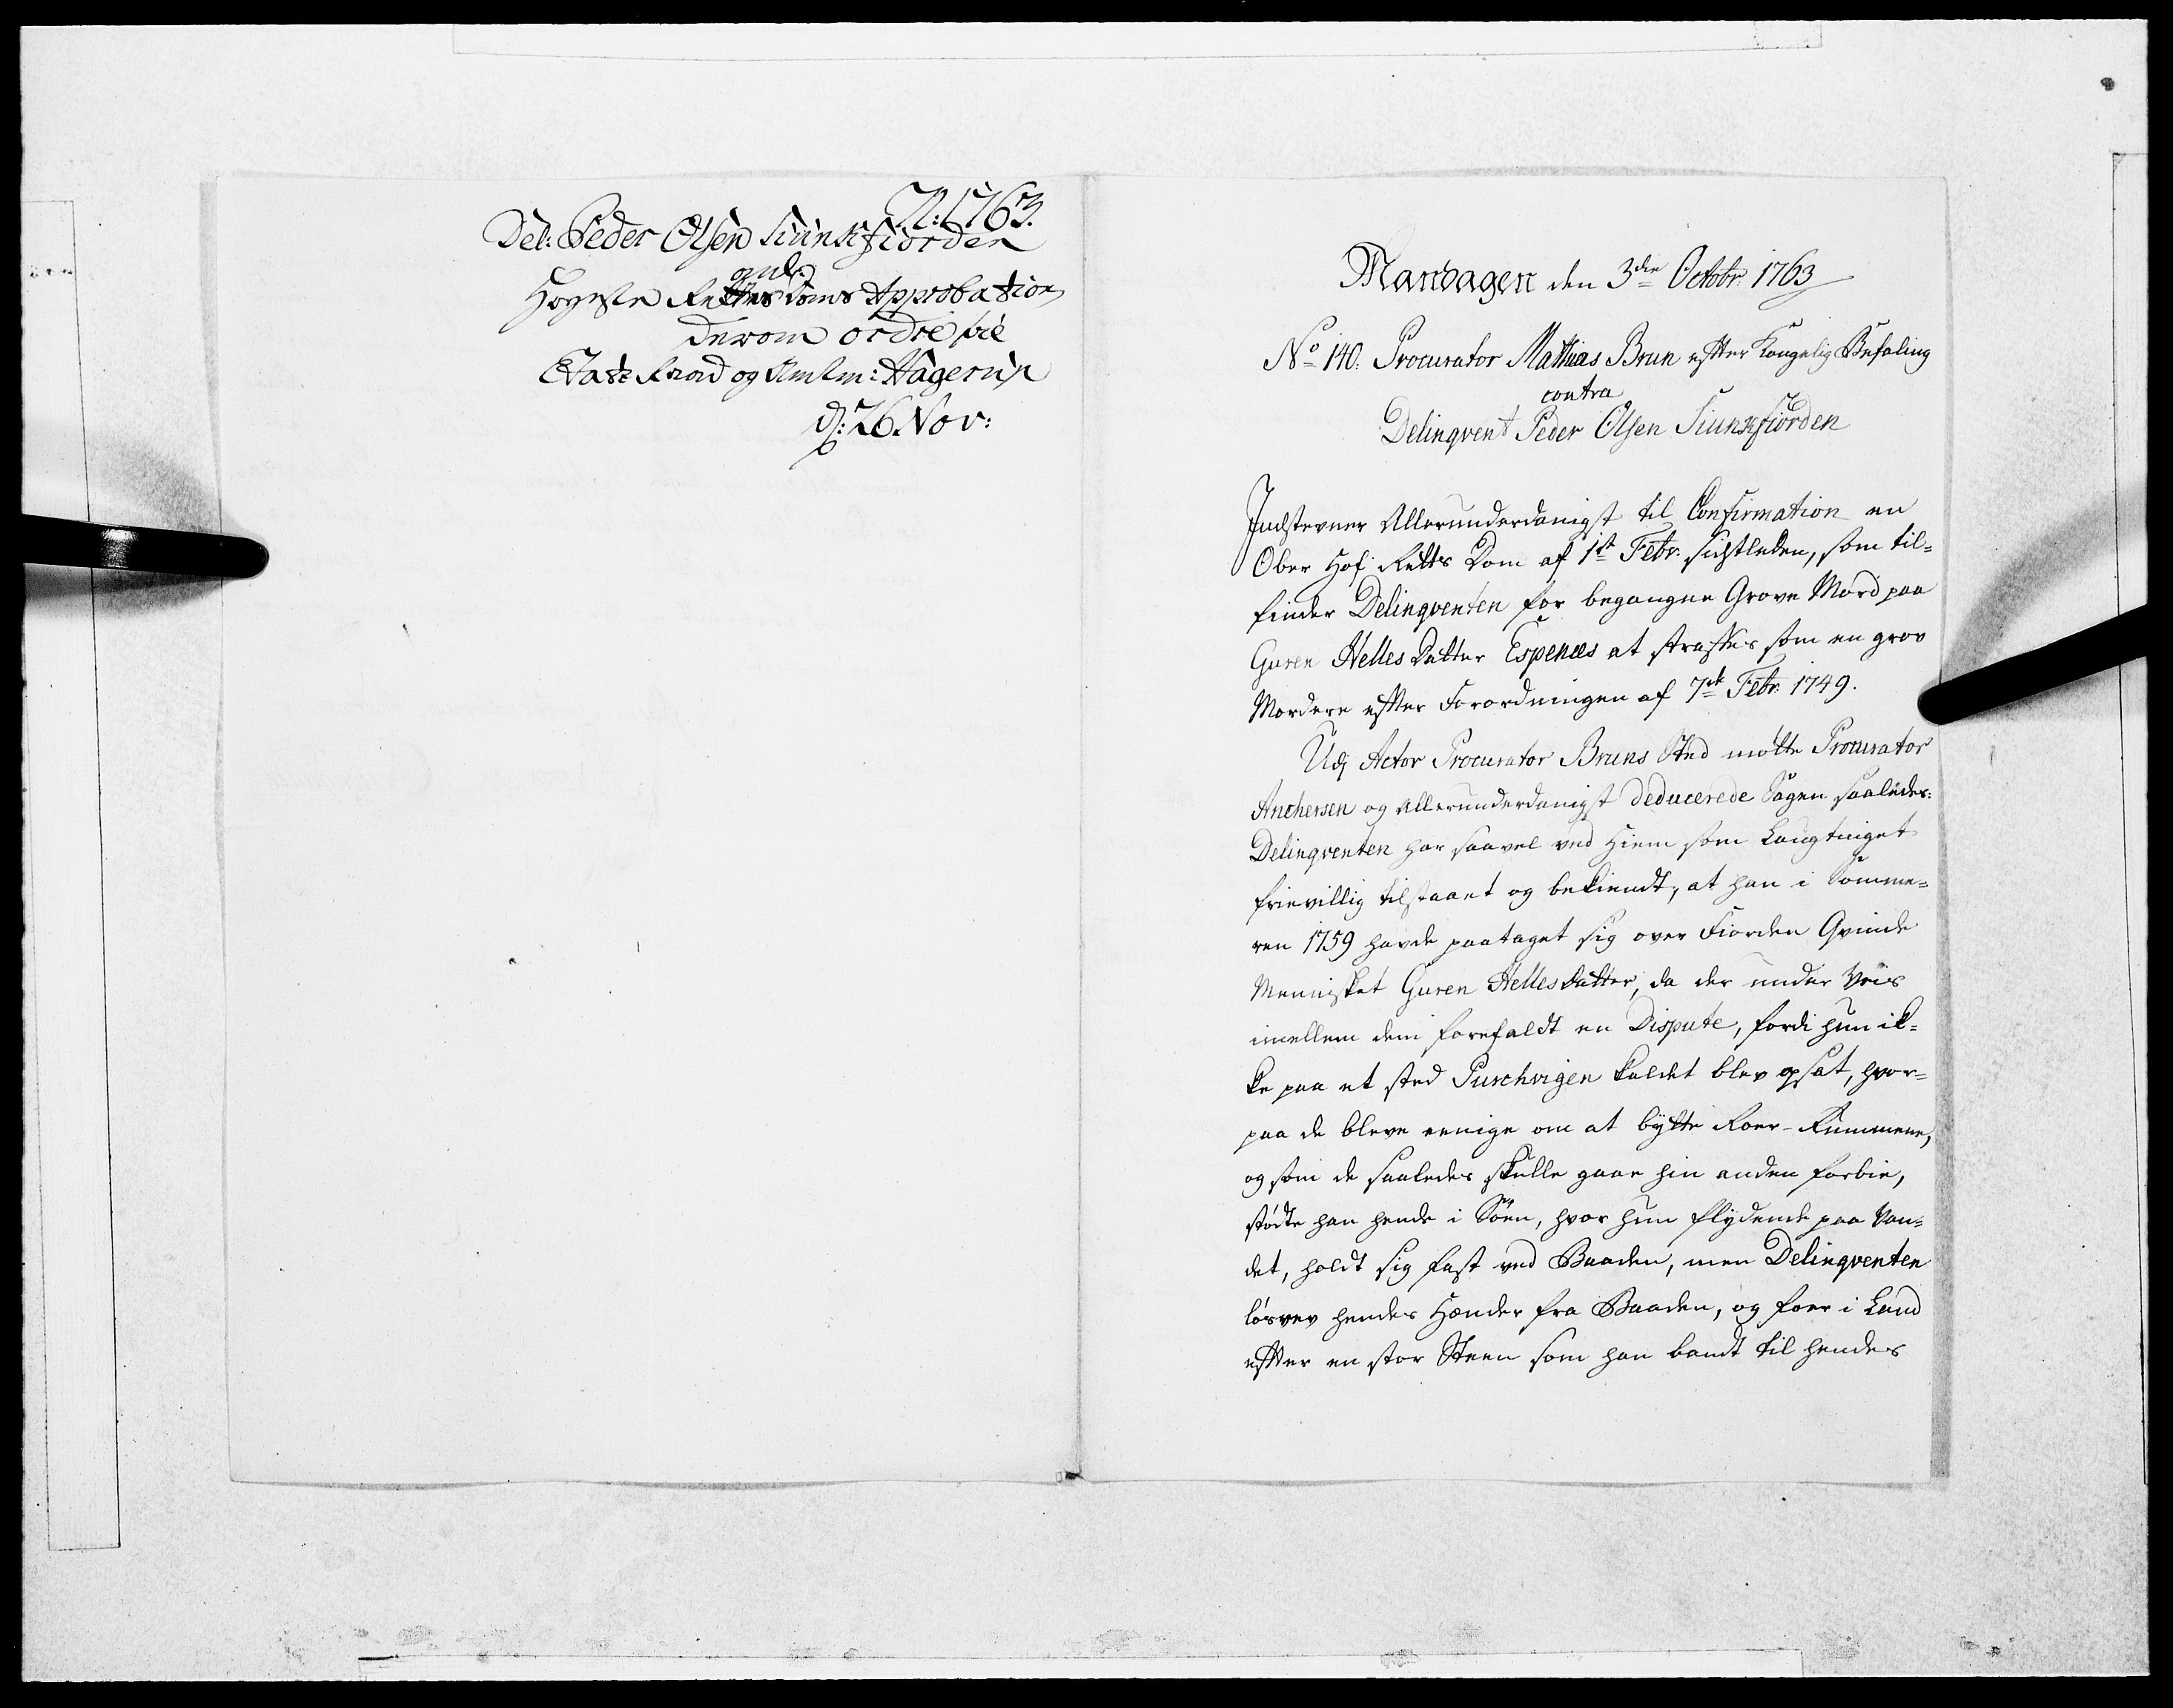 N: 1763.
Del: Peder Olsen Siunkfiorden
ang:
Høyeste Rettes Doms Approbation
derom ordre til
Etats Raad og Amtm: Hagerup
d: 26 Nov:
Mandagen den 3die Octobr: 1763
No 140. Procurator Mathias Brun efter Kongelig Befaling
contra
Delinqvent Peder Olsen Siunkfiorden
Indstevner Allerunderdanigst til Confirmation en
Ober Hof Retts Dom af 1ste Febr: sidstleden, som til=
finder Delinqventen for begangne Grove Mord paa
Guren Helles Datter Espenæs at straffes som en grov
Mordere efter Forordningen af 7de Febr: 1749.
Udj Actor Procurator Bruns Sted mötte Procurator
Anchersen og Allerunderdanigst deducerede Sagen saaledes:
Delinqventen har saavel ved Hiem som Laugtinget
frievillig tilstaaet og bekiendt, at han i Somme=
ren 1759 havde paataget sig over Fiorden Qvinde
Mennisket Guren Hellesdatter, da der under Veis
imellem dem forefaldt en Dispute, fordi hun ik=
ke paa et sted Puschvigen kaldet blev opsat, hvor=
paa de bleve eenige om at bytte Roer-Rummene,
og som de saaledes skulle gaae hin anden forbie,
stödte han hende i Söen, hvor hun flydende paa Van=
det, holdt sig fast ved Baaden, men Delinqventen
lösrev hendes Hænder fra Baaden, og foer i Land
efter en stor Steen som han bandt til hendes